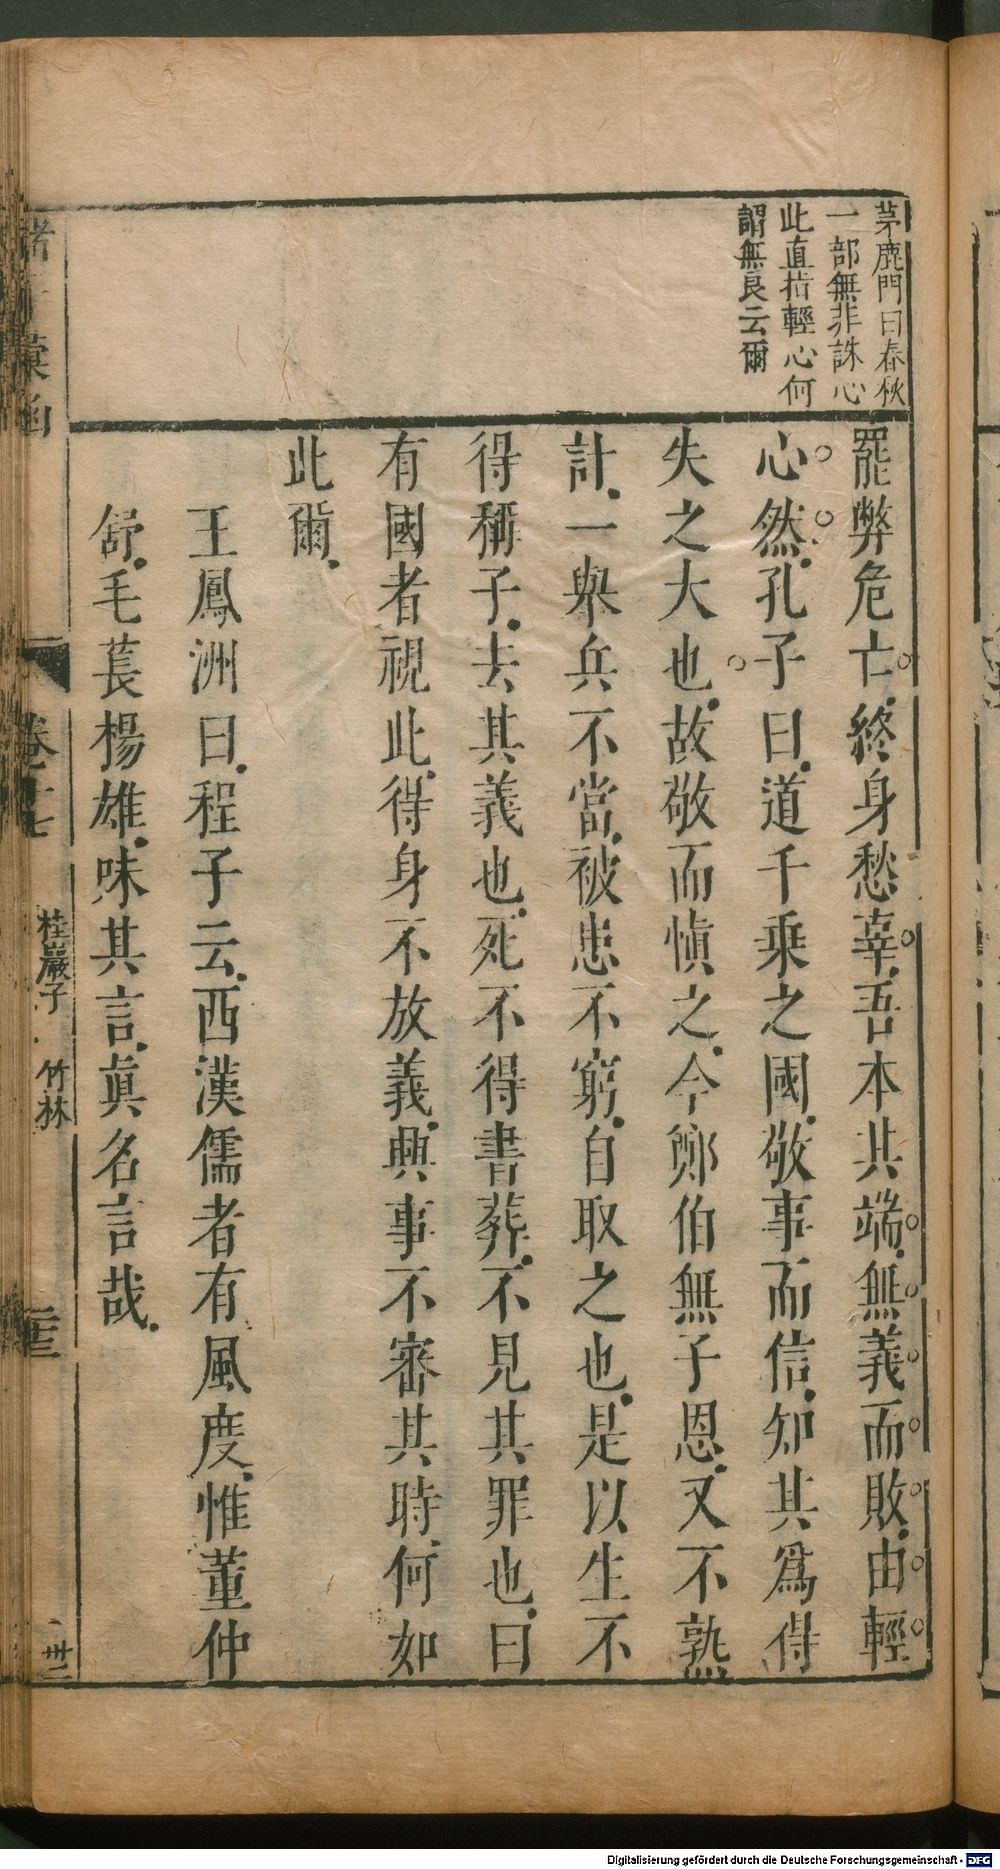 茅鹿門曰春秋
一部無非誅心
此直指輕心何
謂無良云爾
罷弊危亡終身愁辜吾本其端無義而敗由輕
心然孔子曰道千乘之國敬事而信知其爲得
失之大也故敬而慎之今鄭伯無子恩又不熟
計一舉兵不當被患不窮自取之也是以生不
得稱子去其義也死不得書葬不見其罪也曰
有國者視此得身不放義興事不審其時何如
此爾
王鳳洲曰程子云西漢儒者有風度惟董仲
舒毛萇楊雄味其言眞名言哉
彙函
卷十七
桂巖子 竹林
Digitalisierung gefördert durch die Deutsche Forschungsgemeinschaft - DFG